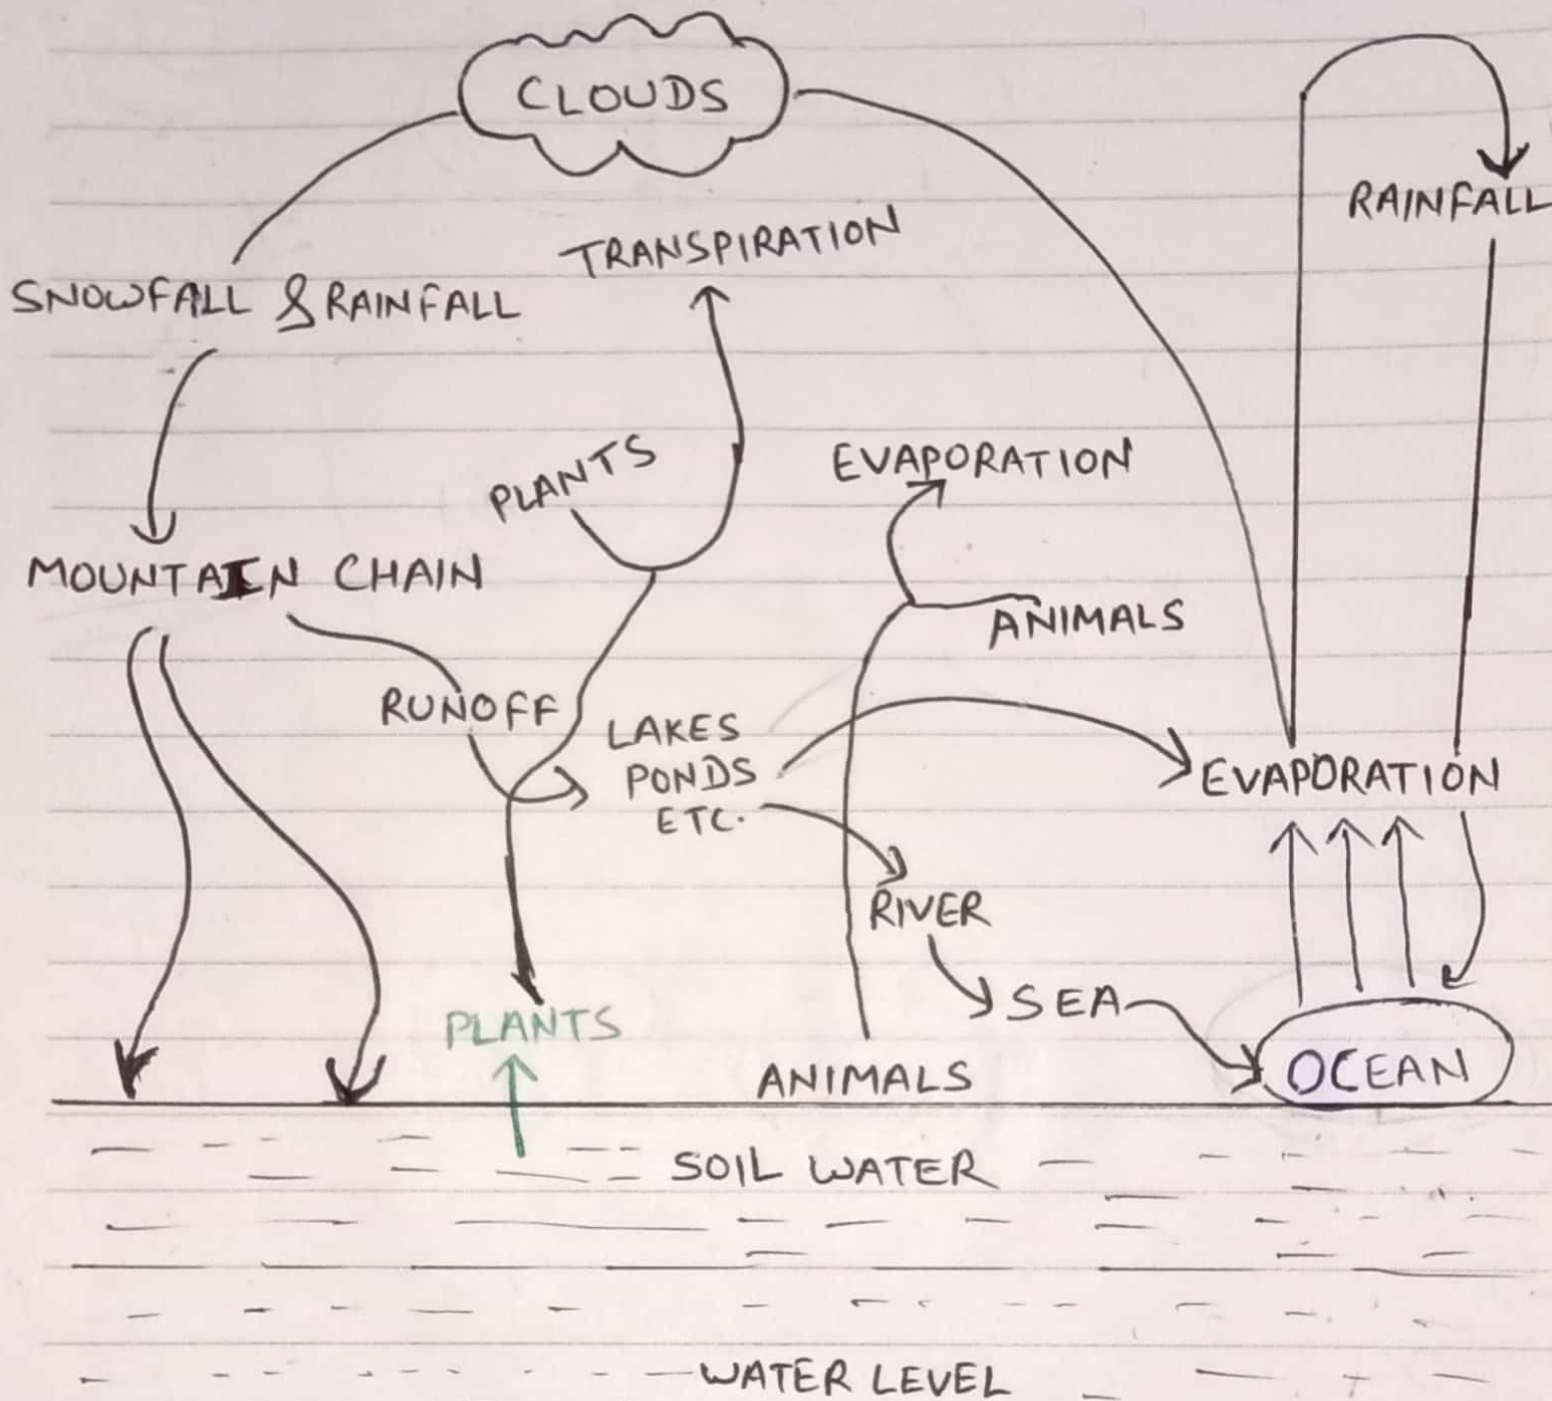 CLOUDS
RAINFALL
TRANSPIRATION
SNOWFALL & RAINFALL
PLANTS
EVAPORATION
MOUNTAIN CHAIN
ANIMALS
RUNOFF
LAKES
PONDS
ETC.
EVAPORATION
RIVER
SEA
PLANTS
ANIMALS
OCEAN
SOIL WATER
WATER LEVEL